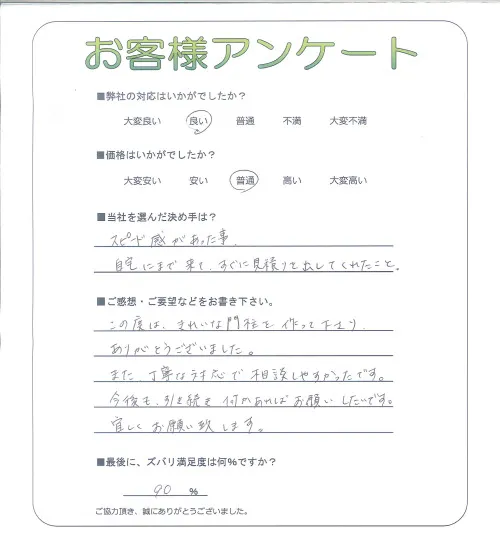 お客様アンケート
■弊社の対応はいかがでしたか?
大変良い 良い 普通 不満 大変不満
■価格はいかがでしたか?
大変安い 安い 普通 高い 大変高い
■当社を選んだ決め手は?
スピード感があった事。
自宅にまで来て、すぐに見積りを出してくれたこと。
■ご感想・ご要望などをお書き下さい。
この度は、きれいな門柱を作って下さり、
ありがとうございました。
また、丁寧な対応で相談しやすかったです。
今後も、引き続き何かあればお願いしたいです。
宜しくお願い致します。
■最後に、ズバリ満足度は何%ですか?
90 %
ご協力頂き、誠にありがとうございました。